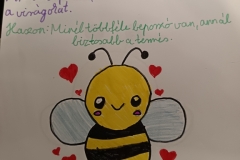 a virágokat.
Haszon: Minél többféle beporzó van, annál
biztosabb a termés.